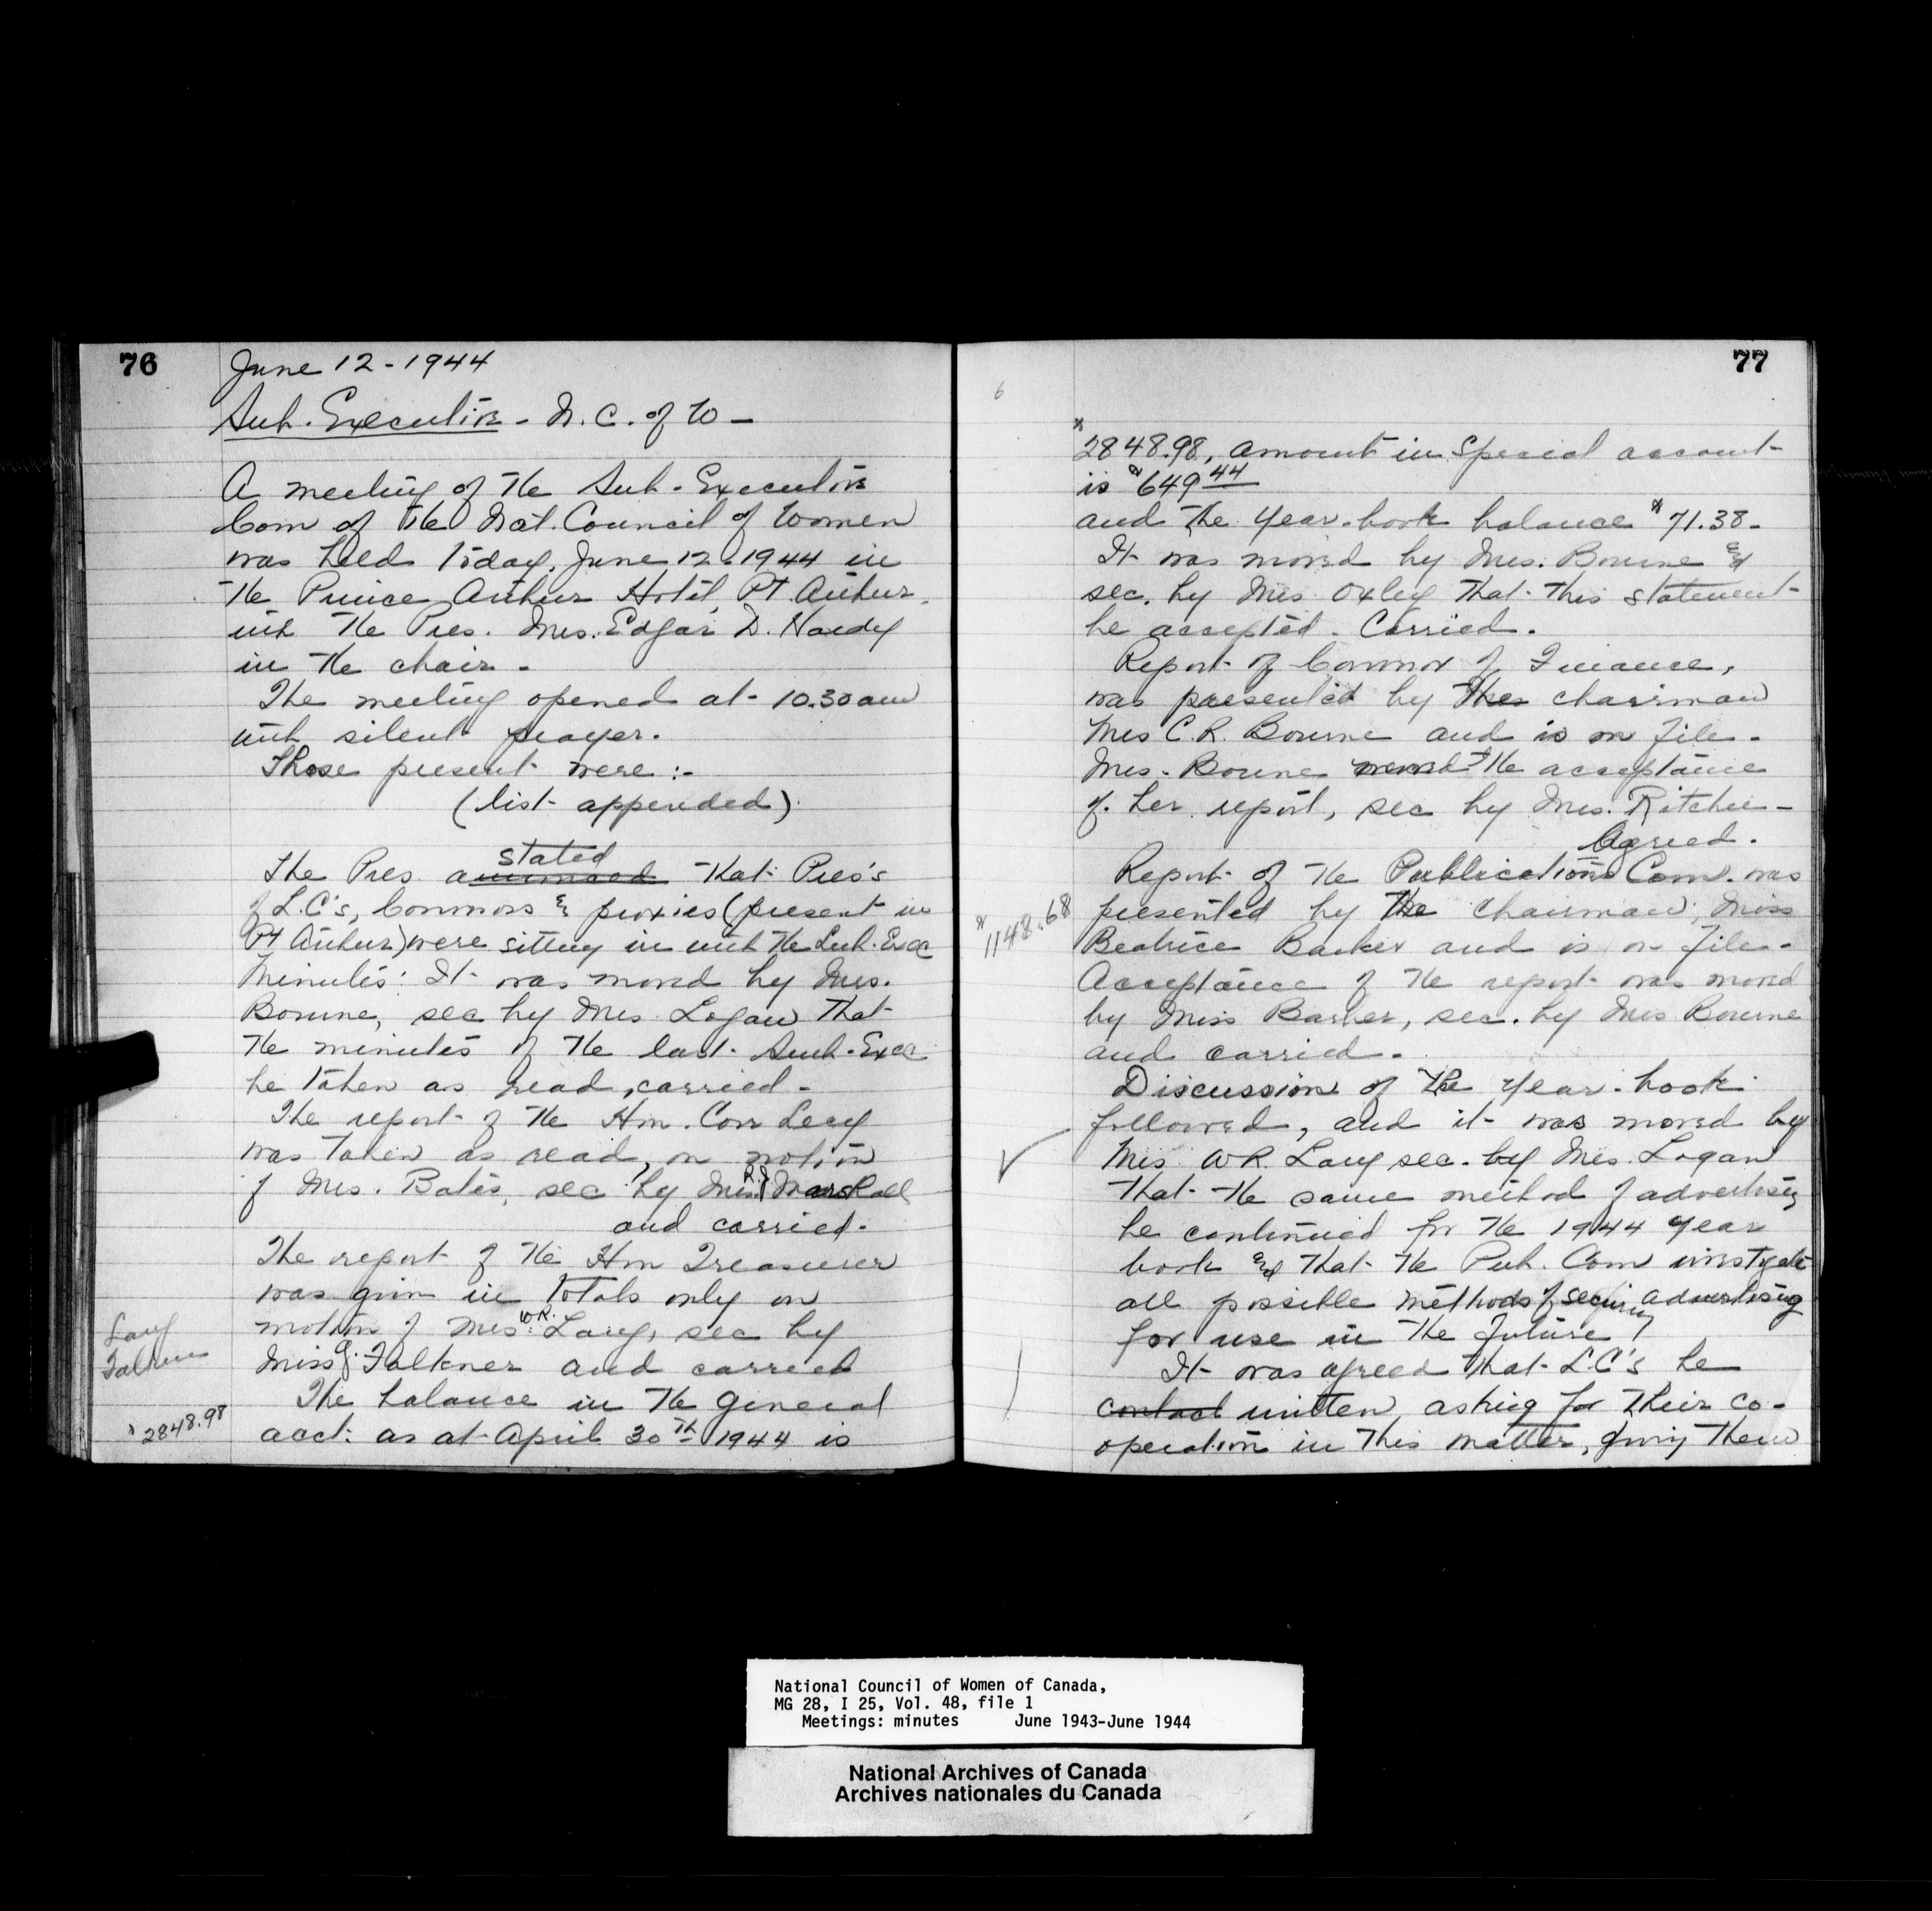 76
June 12 - 1944
Sub. Executive - N. C. of W -
A meeting of the Sub-Executive
Com of the Nat. Council of Women
was held today, June 12. 1944 in
the Prince Arthur Hotel, Pt Arthur,
with the Pres. Mrs. Edgar D. Hardy
in the chair -
The meeting opened at 10.30 am
with silent prayer.
Those present were :-
(list appended)
stated
The Pres announced that Pres's
of L.C's, Convnors & proxies (present in
Pt Arthur) were sitting in with the Sub-Exec
Minutes: It was moved by Mrs.
Bourne, sec by Mrs Logan that
the minutes of the last Sub-Exec
be taken as read, carried -
The report of the Hon. Corr Secy
was taken as read, on motion
of Mrs. Bates, sec by Mrs R.J. Marshall
and carried.
The report of the Hon Treasurer
was given in totals only on
motion of Mrs. W.R. Lang, sec by
Lang
Falkner
Miss G. Falkner and carried
The balance in the general
$2848.98
acct: as at April 30th 1944 is
77
6
$
2848.98, amount in Special account
is $649 44
and the Year-book balance $71.38 -
It was moved by Mrs. Bourne &
sec. by Mrs Oxley that this statement
be accepted. Carried.
Report of Convnor of Finance,
was presented by the chairman
Mrs C.R. Bourne and is on file -
Mrs. Bourne moved the acceptance
of her report, sec by Mrs. Ritchie -
Agreed.
Report of the Publications Com. was
$1148.68
presented by the Chairman, Miss
Beatrice Barker and is on file -
Acceptance of the report was moved
by Miss Barker, sec. by Mrs Bourne
and carried -
Discussion of the Year-book
followed, and it was moved by
Mrs. W.R. Lang sec. by Mrs. Logan
that the same method of advertising
be continued for the 1944 year
book & that the Pub. Com investigate
all possible methods of securing advertising
for use in the future
It was agreed that L.C's be
contact written, asking for their co-
operation in this matter, giving them
National Council of Women of Canada,
MG 28, I 25, Vol. 48, file 1
Meetings: minutes June 1943-June 1944
National Archives of Canada
Archives nationales du Canada